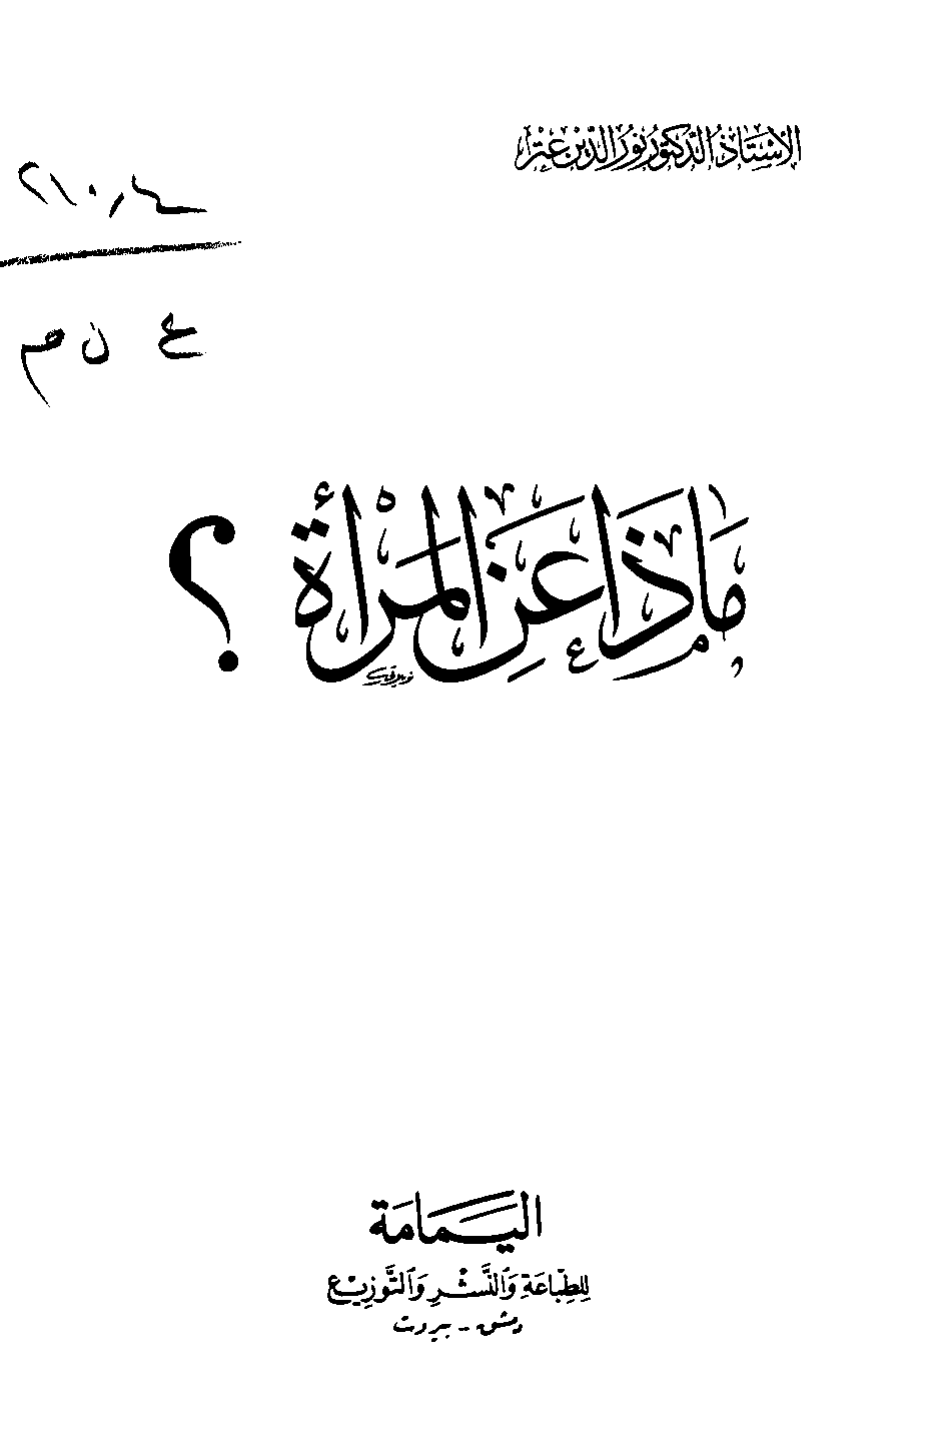 الأُسْتَاذُ الدّكتُور نُورُ الدِّيْن عِتْر
ع ن م
مَاذَا عَنِ المَرْأة ؟
اليَمَامَة
لِلطِّبَاعَةِ وَالنَّشْرِ وَالتَّوْزِيْع
دمشق - بيروت